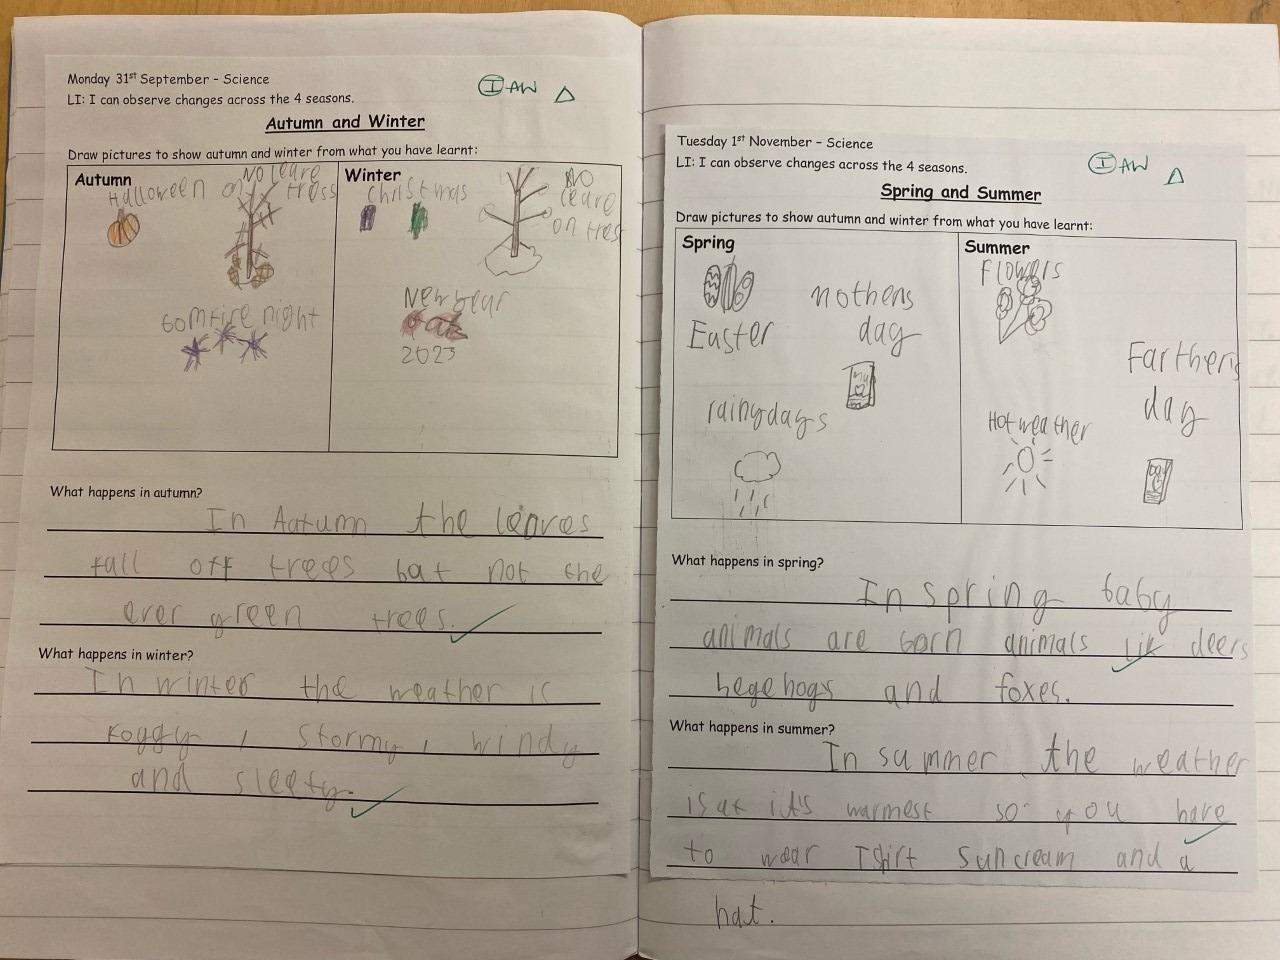 Monday 31st September - Science
I AW
LI: I can observe changes across the 4 seasons.
Autumn and Winter
Draw pictures to show autumn and winter from what you have learnt:
Autumn
Halloween
No leave
on tress
bomfire night
Winter
Christmas
No
leave
on tres
New year
2023
What happens in autumn?
In Autumn the leaves
fall off trees bat not the
ever green trees.
What happens in winter?
In winter the weather is
Foggy, stormy, windy
and sleety.
Tuesday 1st November - Science
I AW
LI: I can observe changes across the 4 seasons.
Spring and Summer
Draw pictures to show autumn and winter from what you have learnt:
Spring
Easter
mothers
day
rainydays
Summer
Flowers
Farthers
day
Hot weather
What happens in spring?
In spring baby
animals are born animals lik deers
hegehogs and foxes.
What happens in summer?
In summer the weather
is at it's warmest so you have
to wear Tshirt suncream and a
hat.